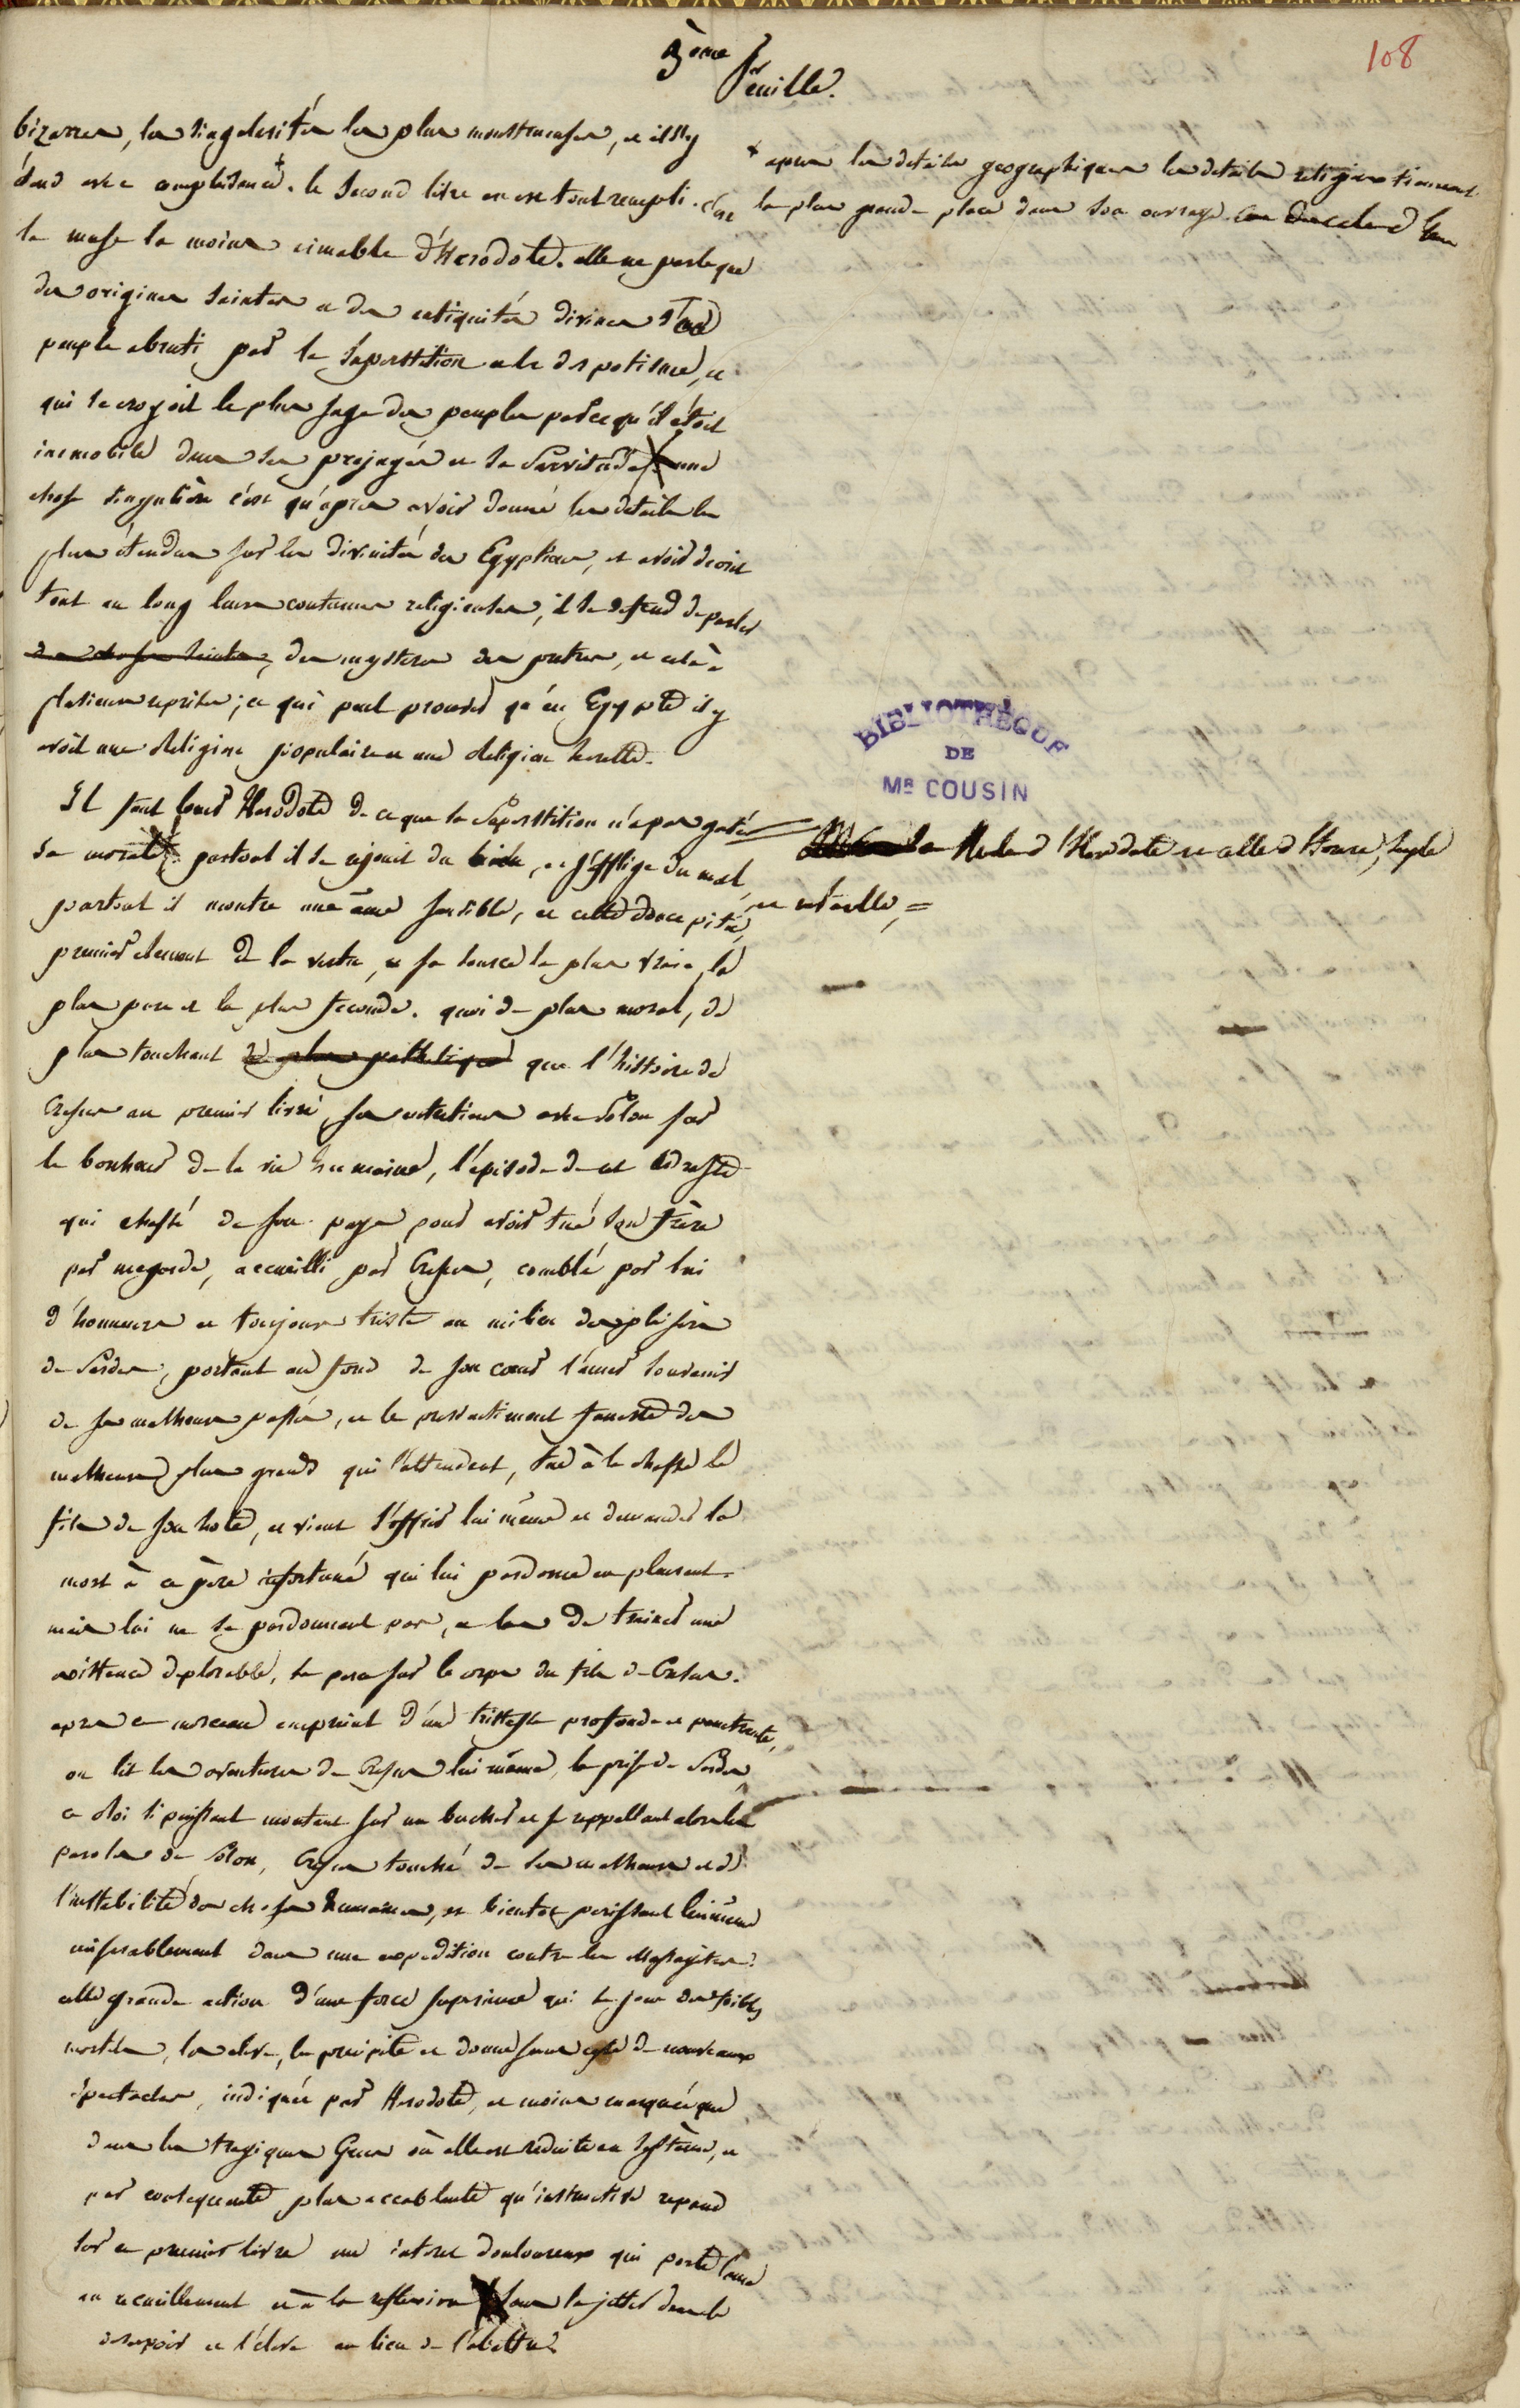 5ème Feuille.
108
bizarres, les singularités les plus monstrueuses, et il s'y
étend avec complaisance +. le Second livre en est tout rempli. c'est
la muse la moins aimable d'Herodote. elle ne parle que
des origines saintes et des antiquités divines d'un
peuple abruti par la superstition et le despotisme, et
qui se croyoit le plus sage des peuples parcequ'il étoit
immobile dans ses préjugés et sa servitude. une
chose singulière c'est qu'après avoir donné les details les
plus étendus sur les divinités des Egyptiens, et avoir decrit
tout au long leurs coutumes religieuses, il se defend de parler
des choses saintes, des mysteres des pretres, et cela à
plusieurs reprises; ce qui peut prouver qu'en Egypte il y
avoit une Religion populaire et une Religion secrette.
Il faut louer Herodote de ce que la Superstition n'a pas gaté
sa morale. partout il se rejouit du bien, et s'afflige du mal,
partout il montre une âme sensible, et cette douce pitié,
premier element de la vertu, et sa source la plus vraie, la
plus pure et la plus feconde. quoi de plus moral, de
plus touchant de plus pathetique que l'histoire de
Cresus au premier livre, ses entretiens avec Solon sur
le bonheur de la vie humaine, l'episode de cet Adraste
qui chassé de son pays pour avoir tué son frère
par megarde, accueilli par Cresus, comblé par lui
d'honneurs et toujours triste au milieu des plaisirs
de Sardes, portant au fond de son cœur l'amer souvenir
de ses malheurs passés, et le pressentiment funeste des
malheurs plus grands qui l'attendent, tue à la chasse le
fils de son hote, et vient s'offrir lui même et demander la
mort à ce père infortuné qui lui pardonne en pleurant.
mais lui ne se pardonnant pas, et las de trainer une
existence deplorable, se perce sur le corps du fils de Cresus.
après ce morceau empreint d'une tristesse profonde et penetrante,
on lit les aventures de Cresus lui même, la prise de Sardes,
ce Roi si puissant montant sur un bucher et se rappellant alors les
paroles de Solon, Cyrus touché de ses malheurs et de
l'instabilité des choses humaines, et bientot perissant lui même
miserablement dans une expedition contre les Massagètes.
cette grande action d'une force superieure qui se joue des foibles
mortels, les eleve, les precipite et donne sans cesse de nouveaux
spectacles, indiquée par Herodote, et moins marquée que
dans les tragiques Grecs où elle est reduite en système, et
par consequent plus accablante qu'instructive repand
sur ce premier livre un interet douloureux qui porte l'ame
au recueillement et à la reflexion sans la jetter dans le
desespoir et l'éleve au lieu de l'abattre.
+ après les details geographiques les details religieux tiennent
la plus grande place dans son ouvrage.
= la Muse d'Herodote est celle d'Homere, simple
et naturelle, =
BIBLIOTHÈQUE
DE
MR COUSIN